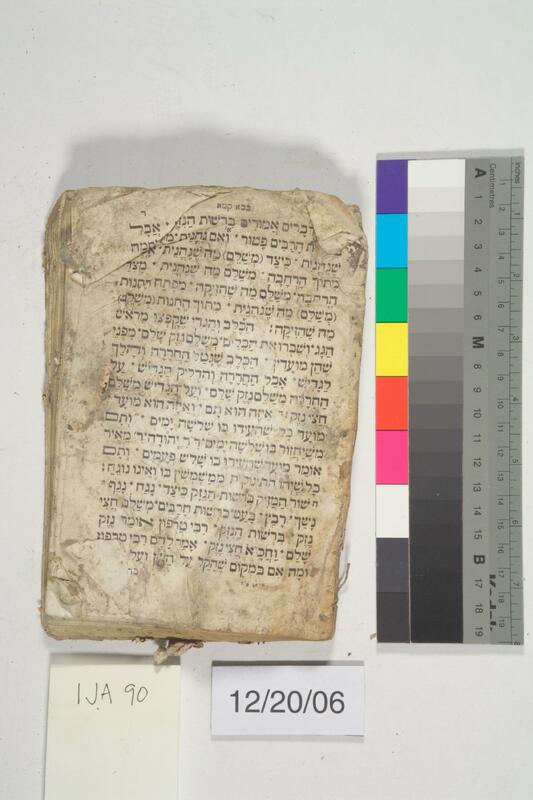 בבא קמא
דברים אמורים ברשות הניזק · אבל
הרבים פטור · ואם נהנית
שנהנית · כיצד (משלם) מה שנהנית · אכלה
מתוך הרחבה · משלם מה שנהנית · מצדי
הרחבה · משלם מה שהזיקה · מפתח החנות ·
(משלם) מה שנהנית · מתוך החנות (משלם)
מה שהזיקה : הכלב והגדי שקפצו מראש
הגג ושברו את הכלים משלם נזק שלם · מפני
שהן מועדין · הכלב שנטל חררה והלך
לגדיש · אכל החררה והדליק הגדיש · על
החררה משלם נזק שלם · ועל הגדיש משלם
חצי נזק : איזה הוא תם · ואיזה הוא מועד ·
מועד כל שהעידו בו שלשה ימים · ותם
משיחזור בו שלשה ימים ד"ר יהודה ר' מאיר
אומר מועד שהעידו בו שלש פעמים · ותם
כל שיהו התינוקות ממשמשין בו ואינו נוגח :
שור המזיק ברשות הניזק כיצד · נגח · נגף ·
נשך · רבץ · בעט ברשות הרבים משלם חצי
נזק · ברשות הניזק · רבי טרפון אומר נזק
שלם · וחכ"א חצי נזק · אמר להם רבי טרפון
ומה אם במקום שהקל על השן ועל
A
M
B
Centimetres
inches
1
2
3
4
5
6
7
8
9
10
11
12
13
14
15
16
17
18
19
IJA 90
12/20/06